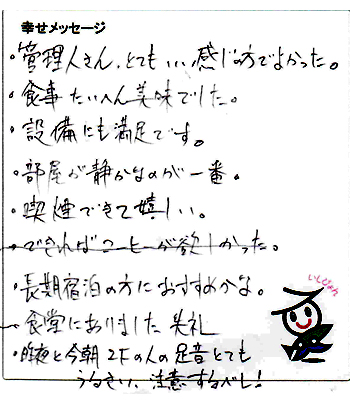 幸せメッセージ
・管理人さん、とてもいい感じの方でよかった。
・食事たいへん美味でした。
・設備にも満足です。
・部屋が静かなのが一番。
・喫煙できて嬉しい。
・できればコーヒーが欲しかった。
・長期宿泊の方におすすめかな。
食堂にありました 失礼
・昨夜と今朝2Fの人の足音とても
うるさい、注意するべし!